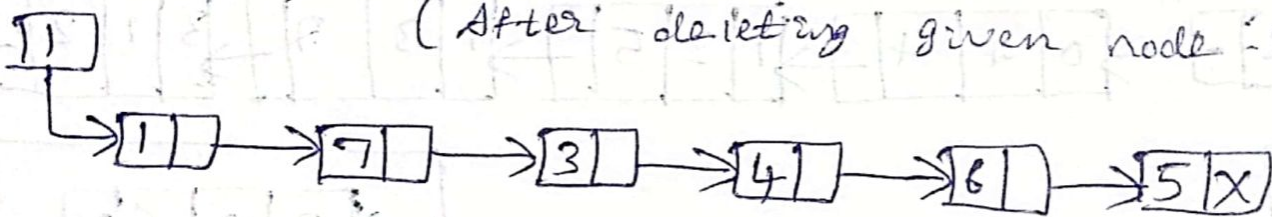 (After deleting given node:
1
1 7 3 4 6 5 X